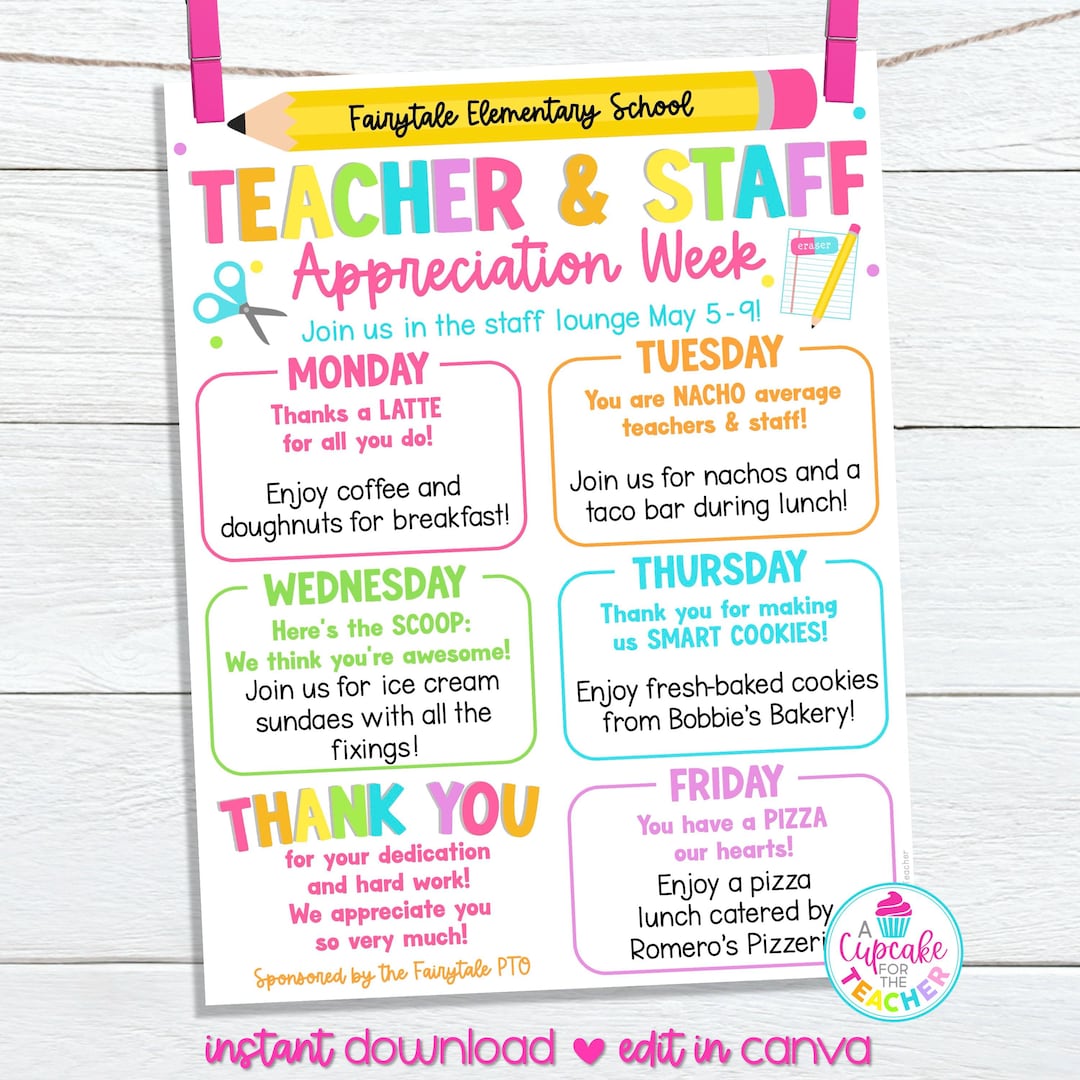 Fairytale Elementary School
TEACHER & STAFF
Appreciation Week
eraser
Join us in the staff lounge May 5-9!
MONDAY
Thanks a LATTE
for all you do!
Enjoy coffee and
doughnuts for breakfast!
TUESDAY
You are NACHO average
teachers & staff!
Join us for nachos and a
taco bar during lunch!
WEDNESDAY
Here's the SCOOP:
We think you're awesome!
Join us for ice cream
sundaes with all the
fixings!
THURSDAY
Thank you for making
us SMART COOKIES!
Enjoy fresh-baked cookies
from Bobbie's Bakery!
THANK YOU
for your dedication
and hard work!
We appreciate you
so very much!
Sponsored by the Fairytale PTO
FRIDAY
You have a PIZZA
our hearts!
Enjoy a pizza
lunch catered by
Romero's
A
Cupcake
FOR
THE
TEACHER
instant download ♥ edit in canva